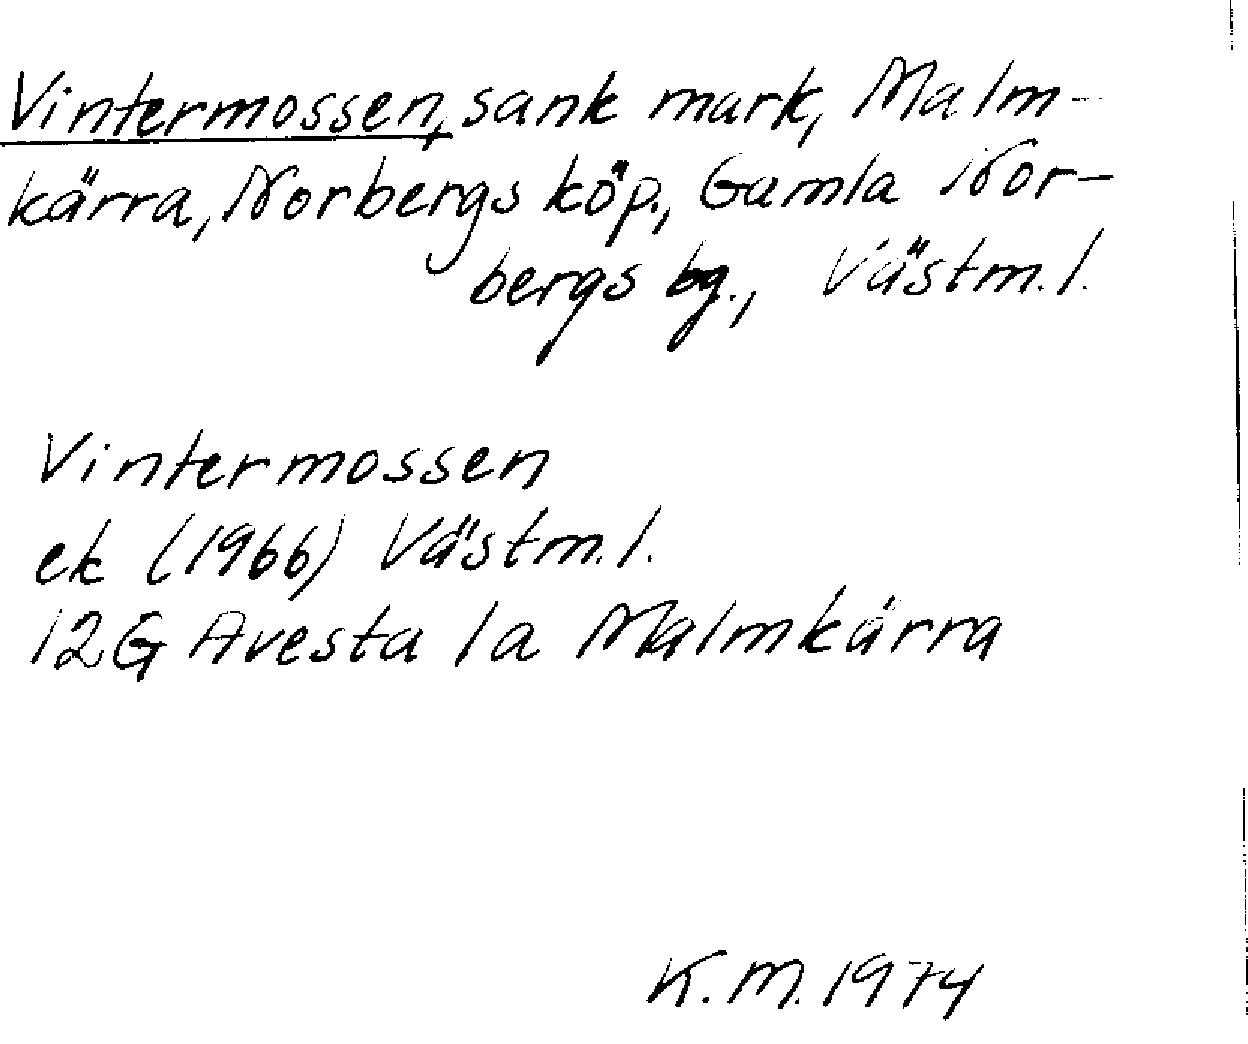 Vintermossen, sank mark, Malm-
kärra, Norbergs köp., Gamla Nor-
bergs bg., Västm.l.
Vintermossen
ek (1966) Västm.l.
12G Avesta 1a Malmkärra
K.M. 1974